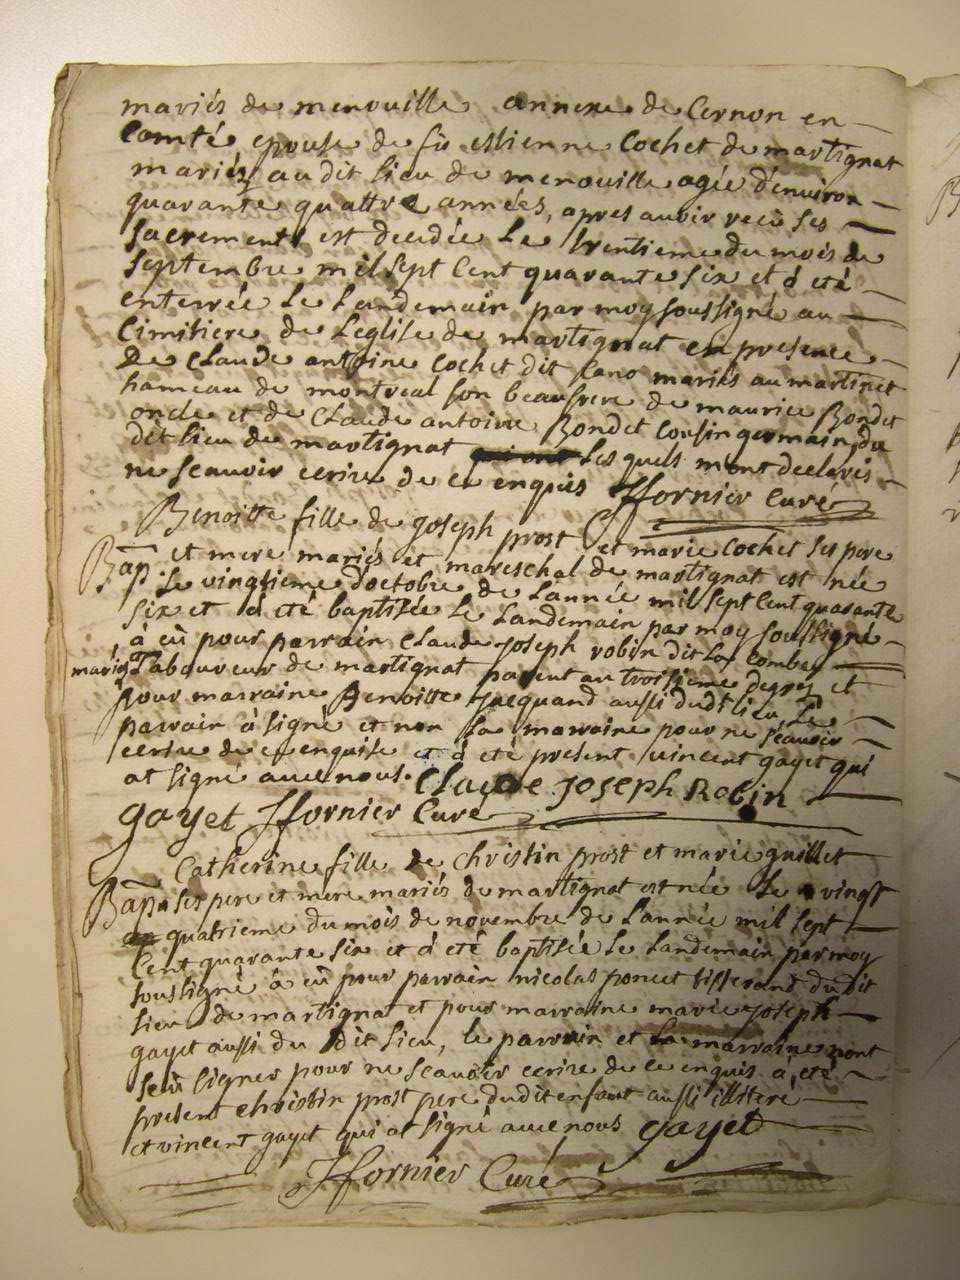 mariés de menouille annexe de Cernon en
Comté epouse de fü estienne Cochet de martignat
mariéz au dit lieu de menouille agée d'environ
quarante quattre années, apres auoir recü ses
sacrements est decedée Le trentieme du mois de
septembre mil sept Cent quarante six et à eté
enterrée Le Landemain par moy soussigné au
Cimitiere de Leglise de martignat en presence
De Claude antoine Cochet dit Cano mariés au martinet
hameau de montreal son beaufrere de maurice Bondet
oncle et de Claude antoine Bondet Cousin germain du
dit lieu de martignat Lesquels mont declarés
ne scauoir ecrire de ce enquis ffornier Curé
Benoitte fille de joseph prost et marie Cochet ses pere
Bap. et mere mariés et mareschal de martignat est née
Le vingtieme d'octobre de Lannée mil sept Cent quarante
six et à eté baptisée Le Landemain par moy soussigné
à eü pour parrain Claude joseph robin dit La Combe
mariéz Laboureur de martignat parent au troisieme degrez et
pour marraine Benoitte jacquand aussi dudt lieu, Le
parrain à signé et non La marraine pour ne scauoir
ecrire de ce enquise et à eté present vincent gayet qui
at signé auec nous. Claude Joseph Robin
gayet ffornier Curé
Catherine fille de christin prost et marie guillet
Bap. ses pere et mere mariés de martignat est née Le vingt
quatrieme du mois de novembre de Lannée mil sept
Cent quarante six et à eté baptisée Le Landemain par moy
soussigné à eü pour parrain nicolas poncet tisserand du dit
lieu de martignat et pour marraine marie joseph
gayet aussi du dit lieu, le parrain et La marraine nont
seü signer pour ne scauoir ecrire de ce enquis à eté
present christin prost pere du dit enfant aussi illitere
et vincent gayet qui at signé auec nous gayet
ffornier Curé